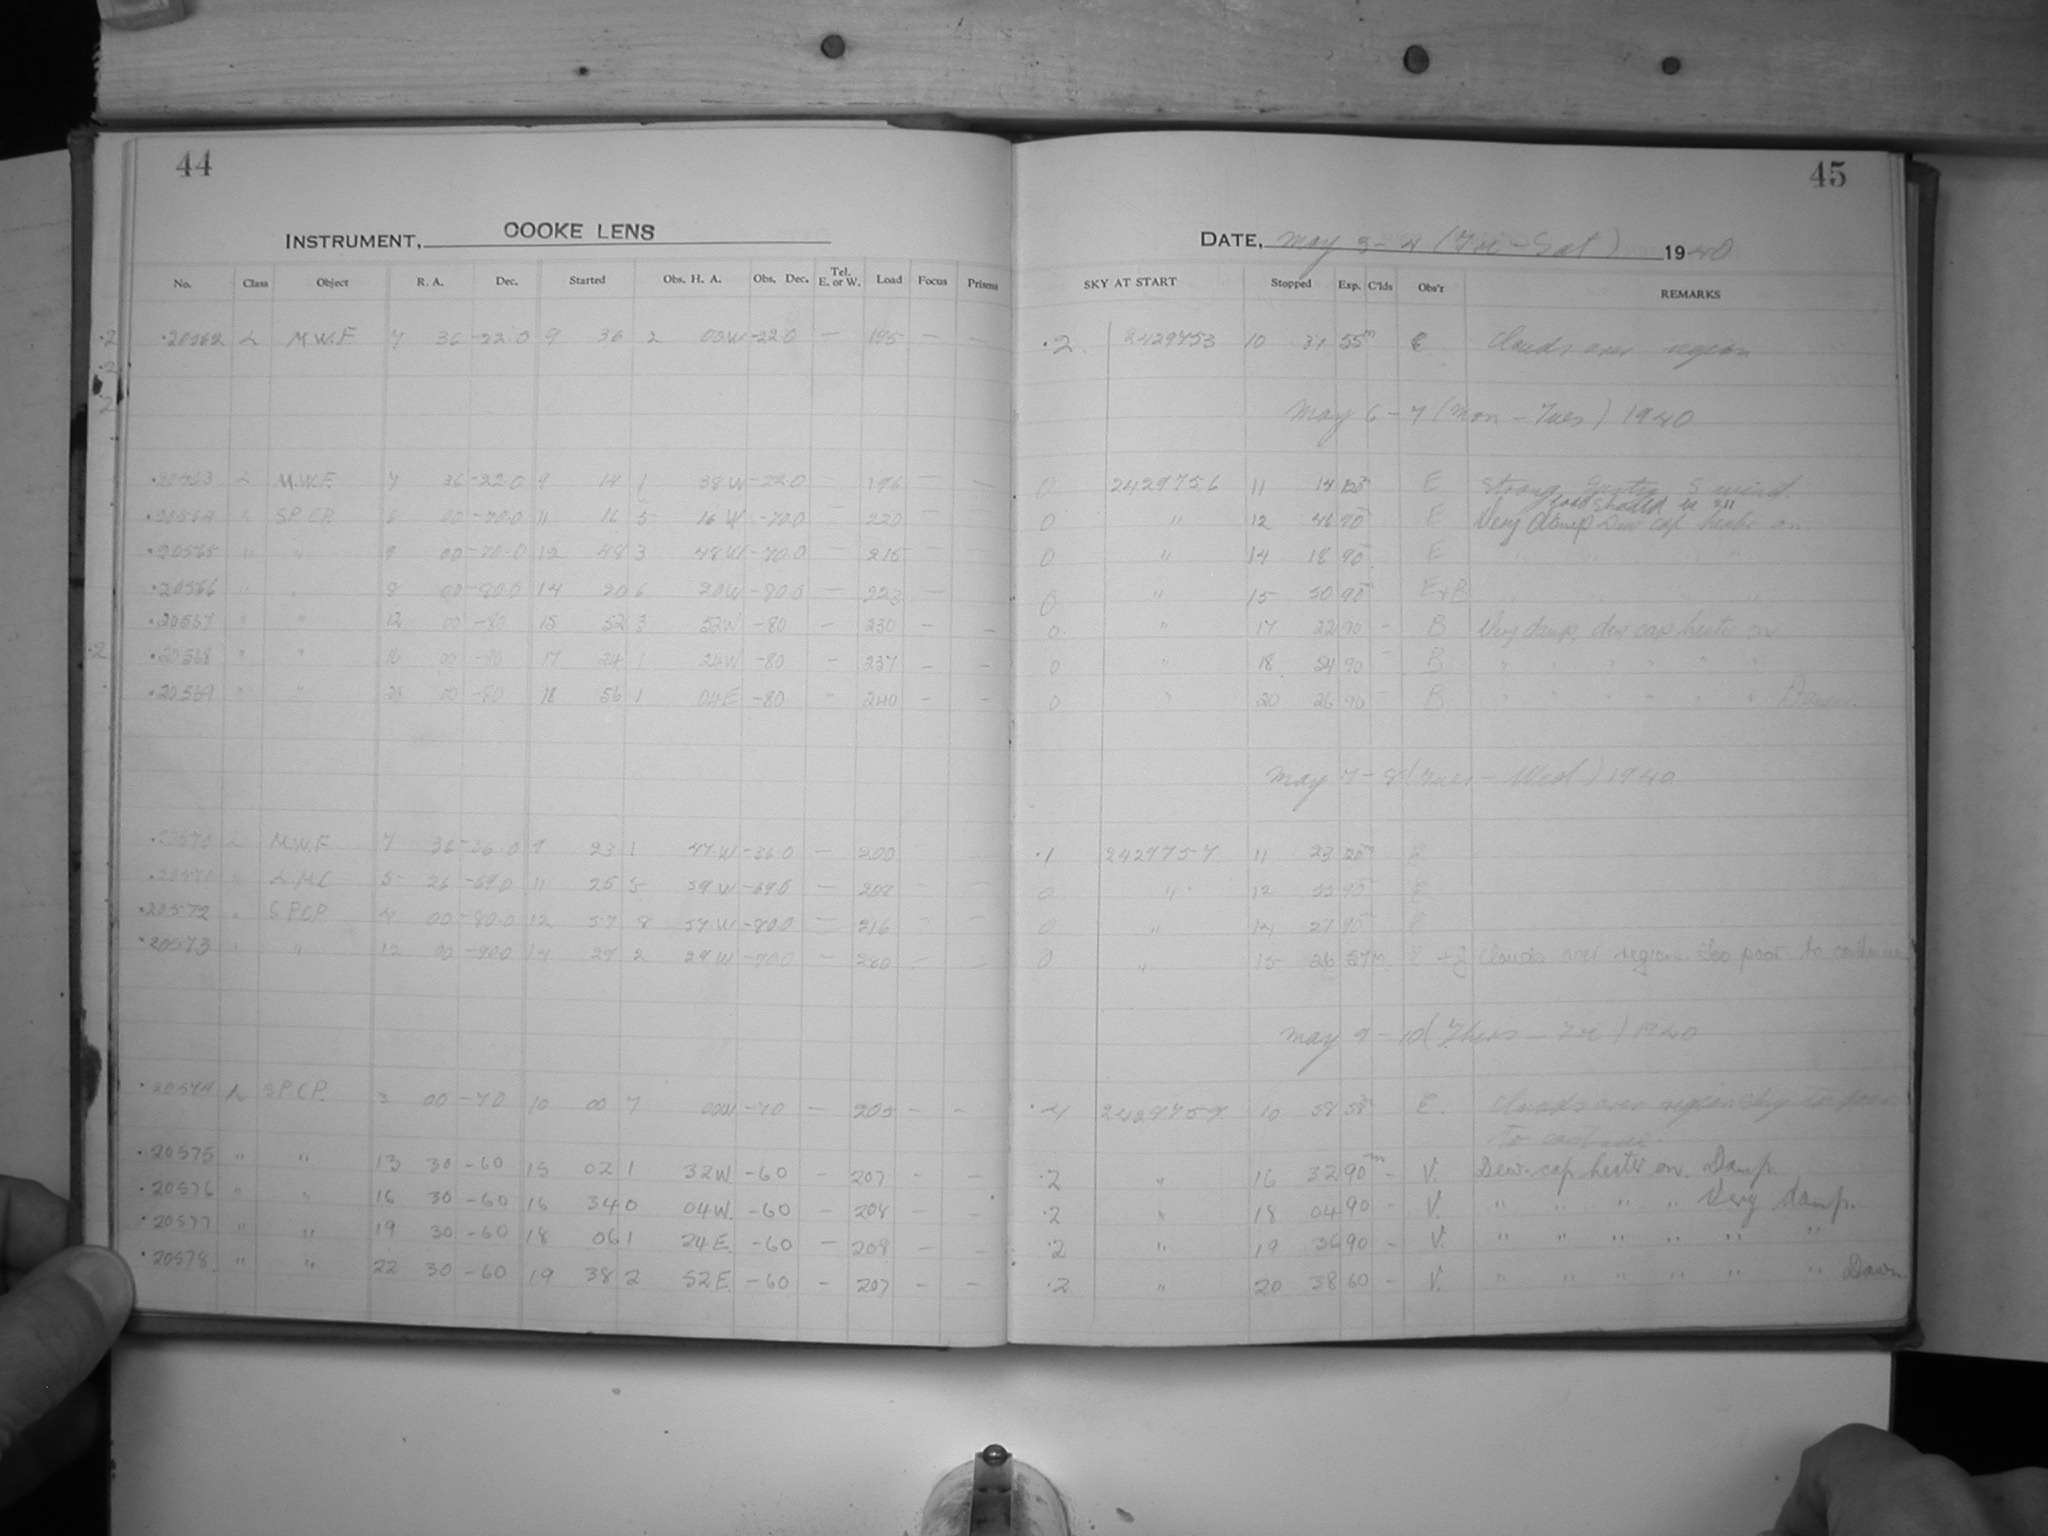 44
45
INSTRUMENT, COOKE LENS
DATE, May 3-4 (Fri-Sat) 1940
No. Class Object R. A. Dec. Started Obs. H. A. Obs. Dec. Tel. E. or W. Load Focus Prisms SKY AT START Stopped Exp. C'lds Obs'r REMARKS
20562 L M.W.F. 7 36 -22.0 9 36 2 00W -22.0 — 195 — — .2 2429753 10 31 55m E Clouds over region
May 6-7 (Mon-Tues) 1940
20563 L M.W.F. 7 36 -22.0 9 14 1 38W -22.0 — 196 — — 0 2429756 11 14 120m E Strong S wind.
20564 " S.P.C.P. 6 00 -70.0 11 16 5 16W -70.0 — 220 — — 0 " 12 46 90 E Very damp Dew cap heater on
20565 " " 9 00 -70.0 12 48 3 48W -70.0 — 215 — — 0 " 14 18 90 E " "
20566 " " 8 00 -80.0 14 20 6 20W -80.0 — 223 — — 0 " 15 50 90 E+B " "
20567 " " 12 00 -80 15 52 3 52W -80 — 230 — — 0 " 17 22 90 - B Very damp, dew cap heater on
20568 " " 16 00 -80 17 24 1 24W -80 — 237 — — 0 " 18 54 90 - B " " " " " "
20569 " " 20 00 -80 18 56 1 04E -80 — 240 — — 0 " 20 26 90 - B " " " " " " Dawn.
May 7-8 (Tues-Wed) 1940
20570 L M.W.F. 7 36 -36.0 9 23 1 47W -36.0 — 200 — .1 2429757 11 23 120m E
20571 " L.M.C. 5 26 -69.0 11 25 5 59W -69.0 — 208 — — 0 " 12 55 90 E
20572 " S.P.C.P. 4 00 -80.0 12 57 8 57W -80.0 — 216 — — 0 " 14 27 90 E
20573 " " 12 00 -90.0 14 29 2 29W -90.0 — 280 — — 0 " 15 26 57m E +J Clouds over region. Too poor to continue
May 9-10 (Thurs-Fri) 1940
20574 L S.P.C.P. 3 00 -70 10 00 7 00W -70 — 205 — — .4 2429759 10 58 58m E. Clouds over region sky too poor
to continue.
20575 " " 13 30 -60 15 02 1 32W. -60 — 207 — — .2 " 16 32 90m - V. Dew-cap heater on. Damp.
20576 " " 16 30 -60 16 34 0 04W. -60 — 208 — — .2 " 18 04 90 - V. " " " " Very damp.
20577 " " 19 30 -60 18 06 1 24E. -60 — 208 — — .2 " 19 36 90 - V. " " " " " "
20578 " " 22 30 -60 19 38 2 52E. -60 — 207 — — .2 " 20 38 60 - V. " " " " " " Dawn.